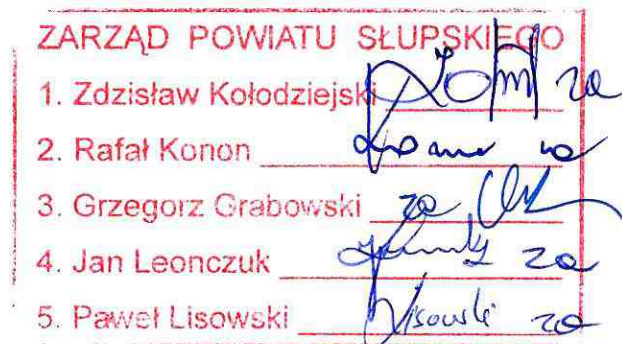 ZARZĄD POWIATU SŁUPSKIEGO
1. Zdzisław Kołodziejski za
2. Rafał Konon za
3. Grzegorz Grabowski za
4. Jan Leonczuk za
5. Paweł Lisowski Lisowski za